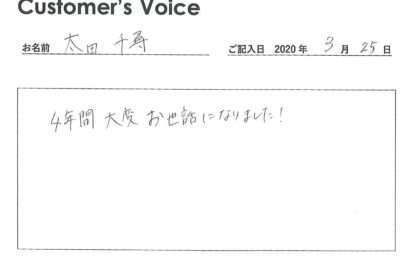 Customer's Voice
お名前 太田 千尋 ご記入日 2020年 3月 25日
4年間 大変 お世話になりました!